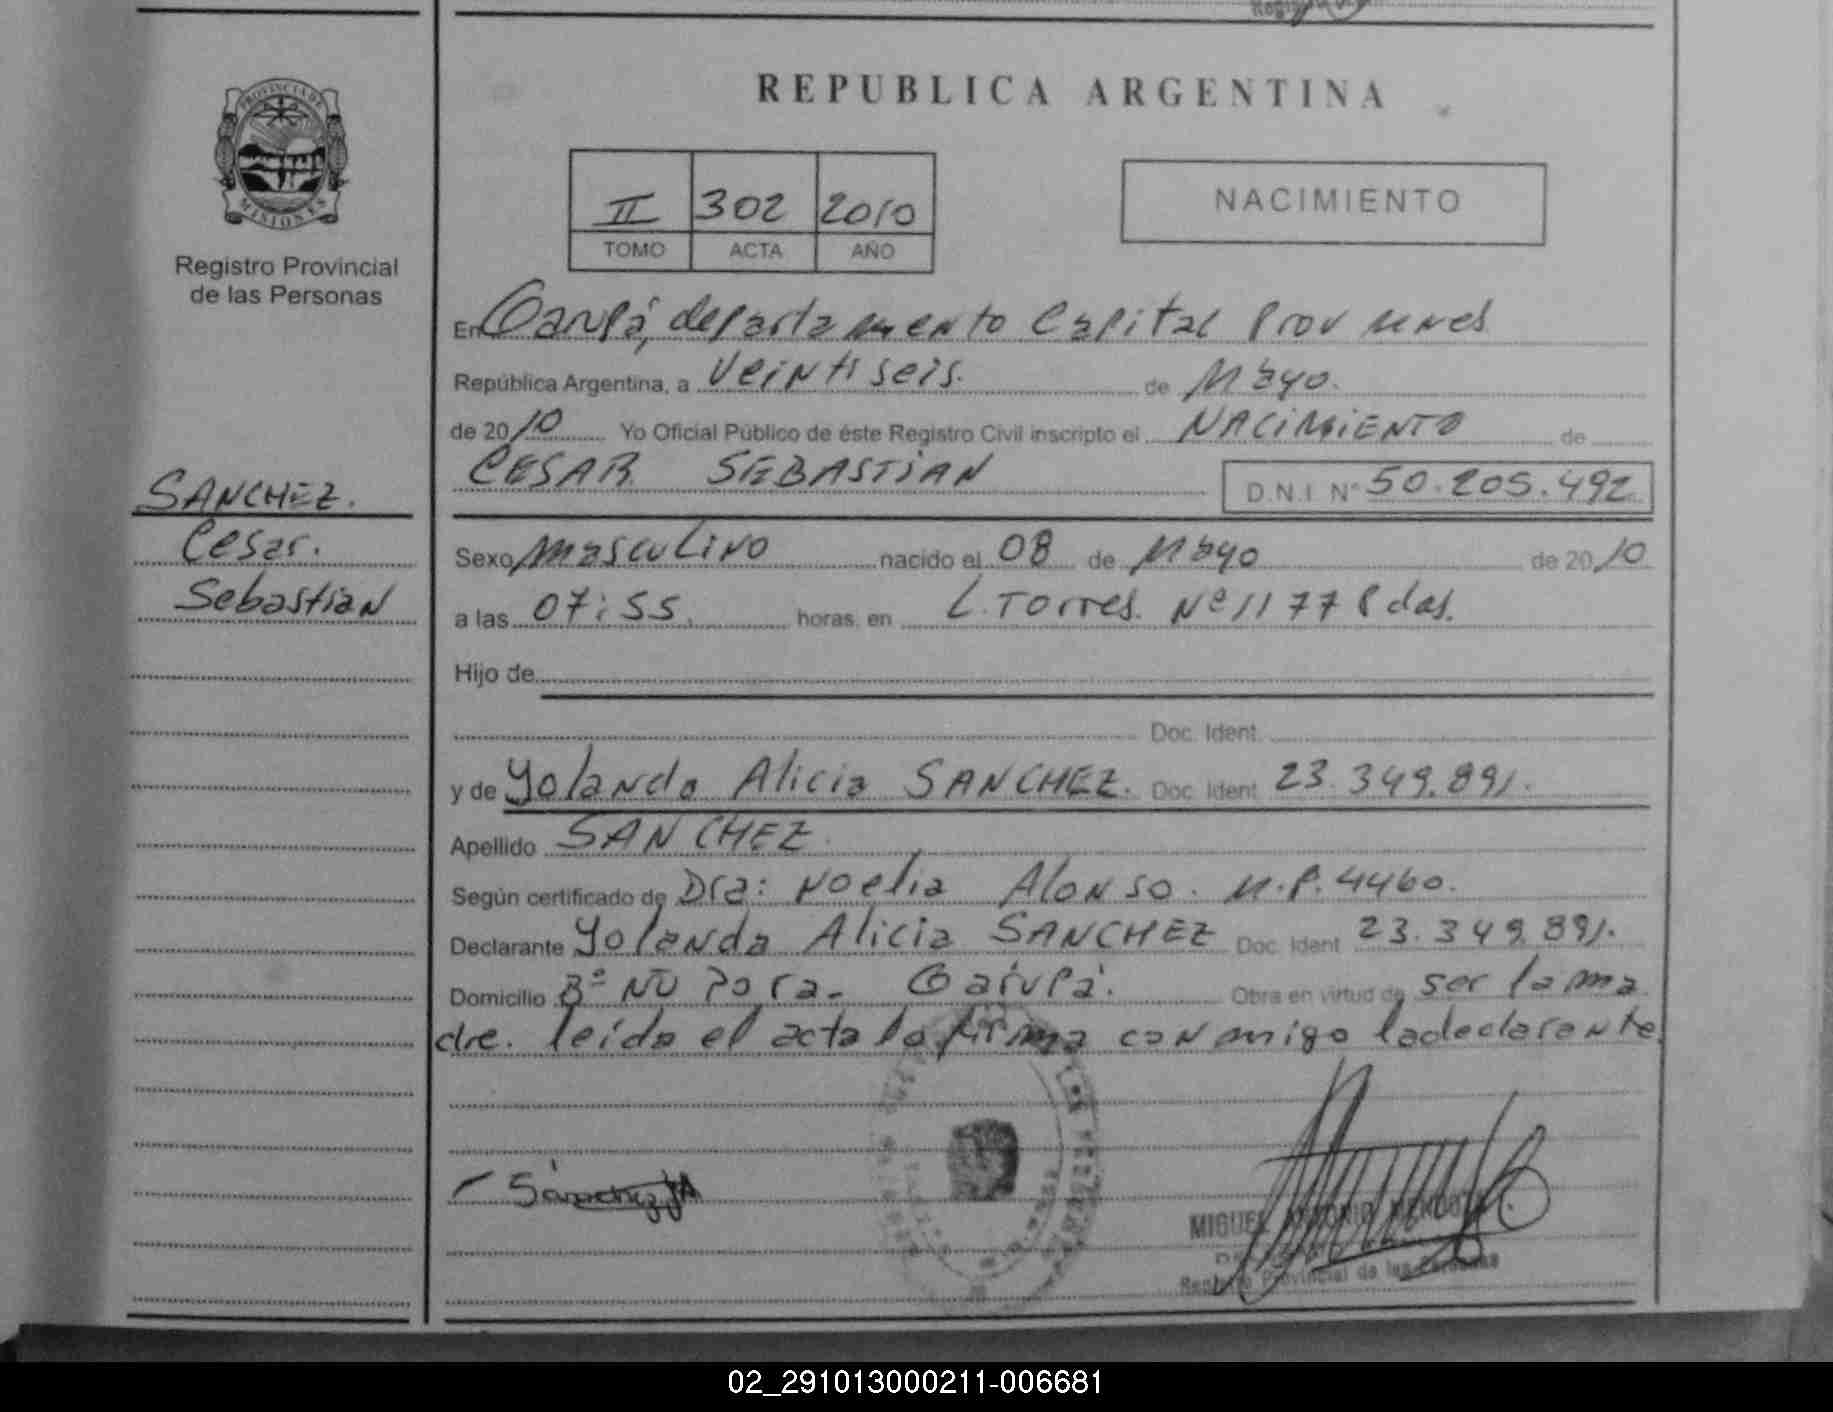 REPUBLICA ARGENTINA
PROVINCIA DE
MISIONES
Registro Provincial
de las Personas
II 302 2010
TOMO ACTA AÑO
NACIMIENTO
En Garupá, departamento Capital Prov
República Argentina, a Veintiseis. de Mayo.
de 2010 Yo Oficial Público de éste Registro Civil inscripto el NACIMIENTO de
CESAR SEBASTIAN D.N.I Nº 50.205.492
SANCHEZ.
Cesar.
Sebastian
Sexo masculino nacido el 08 de Mayo de 2010
a las 07:55. horas, en L. Torres. Nº 1177 Pdas.
Hijo de
Doc. Ident.
y de Yolanda Alicia SANCHEZ. Doc. Ident 23.349.891.
Apellido SANCHEZ.
Según certificado de Dra: Noelia Alonso. M.P. 4460.
Declarante Yolanda Alicia SANCHEZ Doc. Ident 23.349.891.
Domicilio Bº ÑU PORA- Garupá. Obra en virtud de ser la ma
dre. leida el acta la firma conmigo la declarante
Sanchez YA
MIGUEL ANTONIO
Registro Provincial de las Personas
02_291013000211-006681